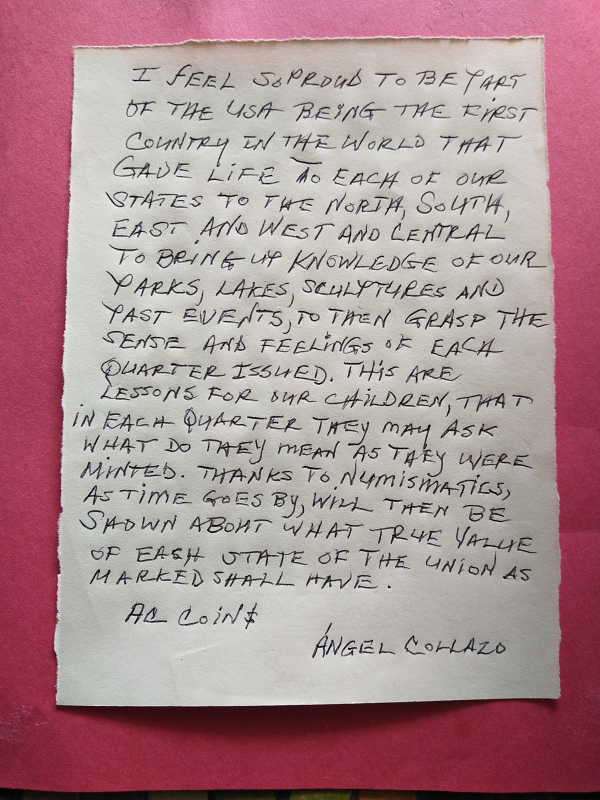 I FEEL SO PROUD TO BE PART
OF THE USA BEING THE FIRST
COUNTRY IN THE WORLD THAT
GAVE LIFE TO EACH OF OUR
STATES TO THE NORTH, SOUTH,
EAST AND WEST AND CENTRAL
TO BRING UP KNOWLEDGE OF OUR
PARKS, LAKES, SCULPTURES AND
PAST EVENTS, TO THEN GRASP THE
SENSE AND FEELINGS OF EACH
QUARTER ISSUED. THIS ARE
LESSONS FOR OUR CHILDREN, THAT
IN EACH QUARTER THEY MAY ASK
WHAT DO THEY MEAN AS THEY WERE
MINTED. THANKS TO NUMISMATICS,
AS TIME GOES BY, WILL THEN BE
SHOWN ABOUT WHAT TRUE VALUE
OF EACH STATE OF THE UNION AS
MARKED SHALL HAVE.
AC COIN$
ÁNGEL COLLAZO